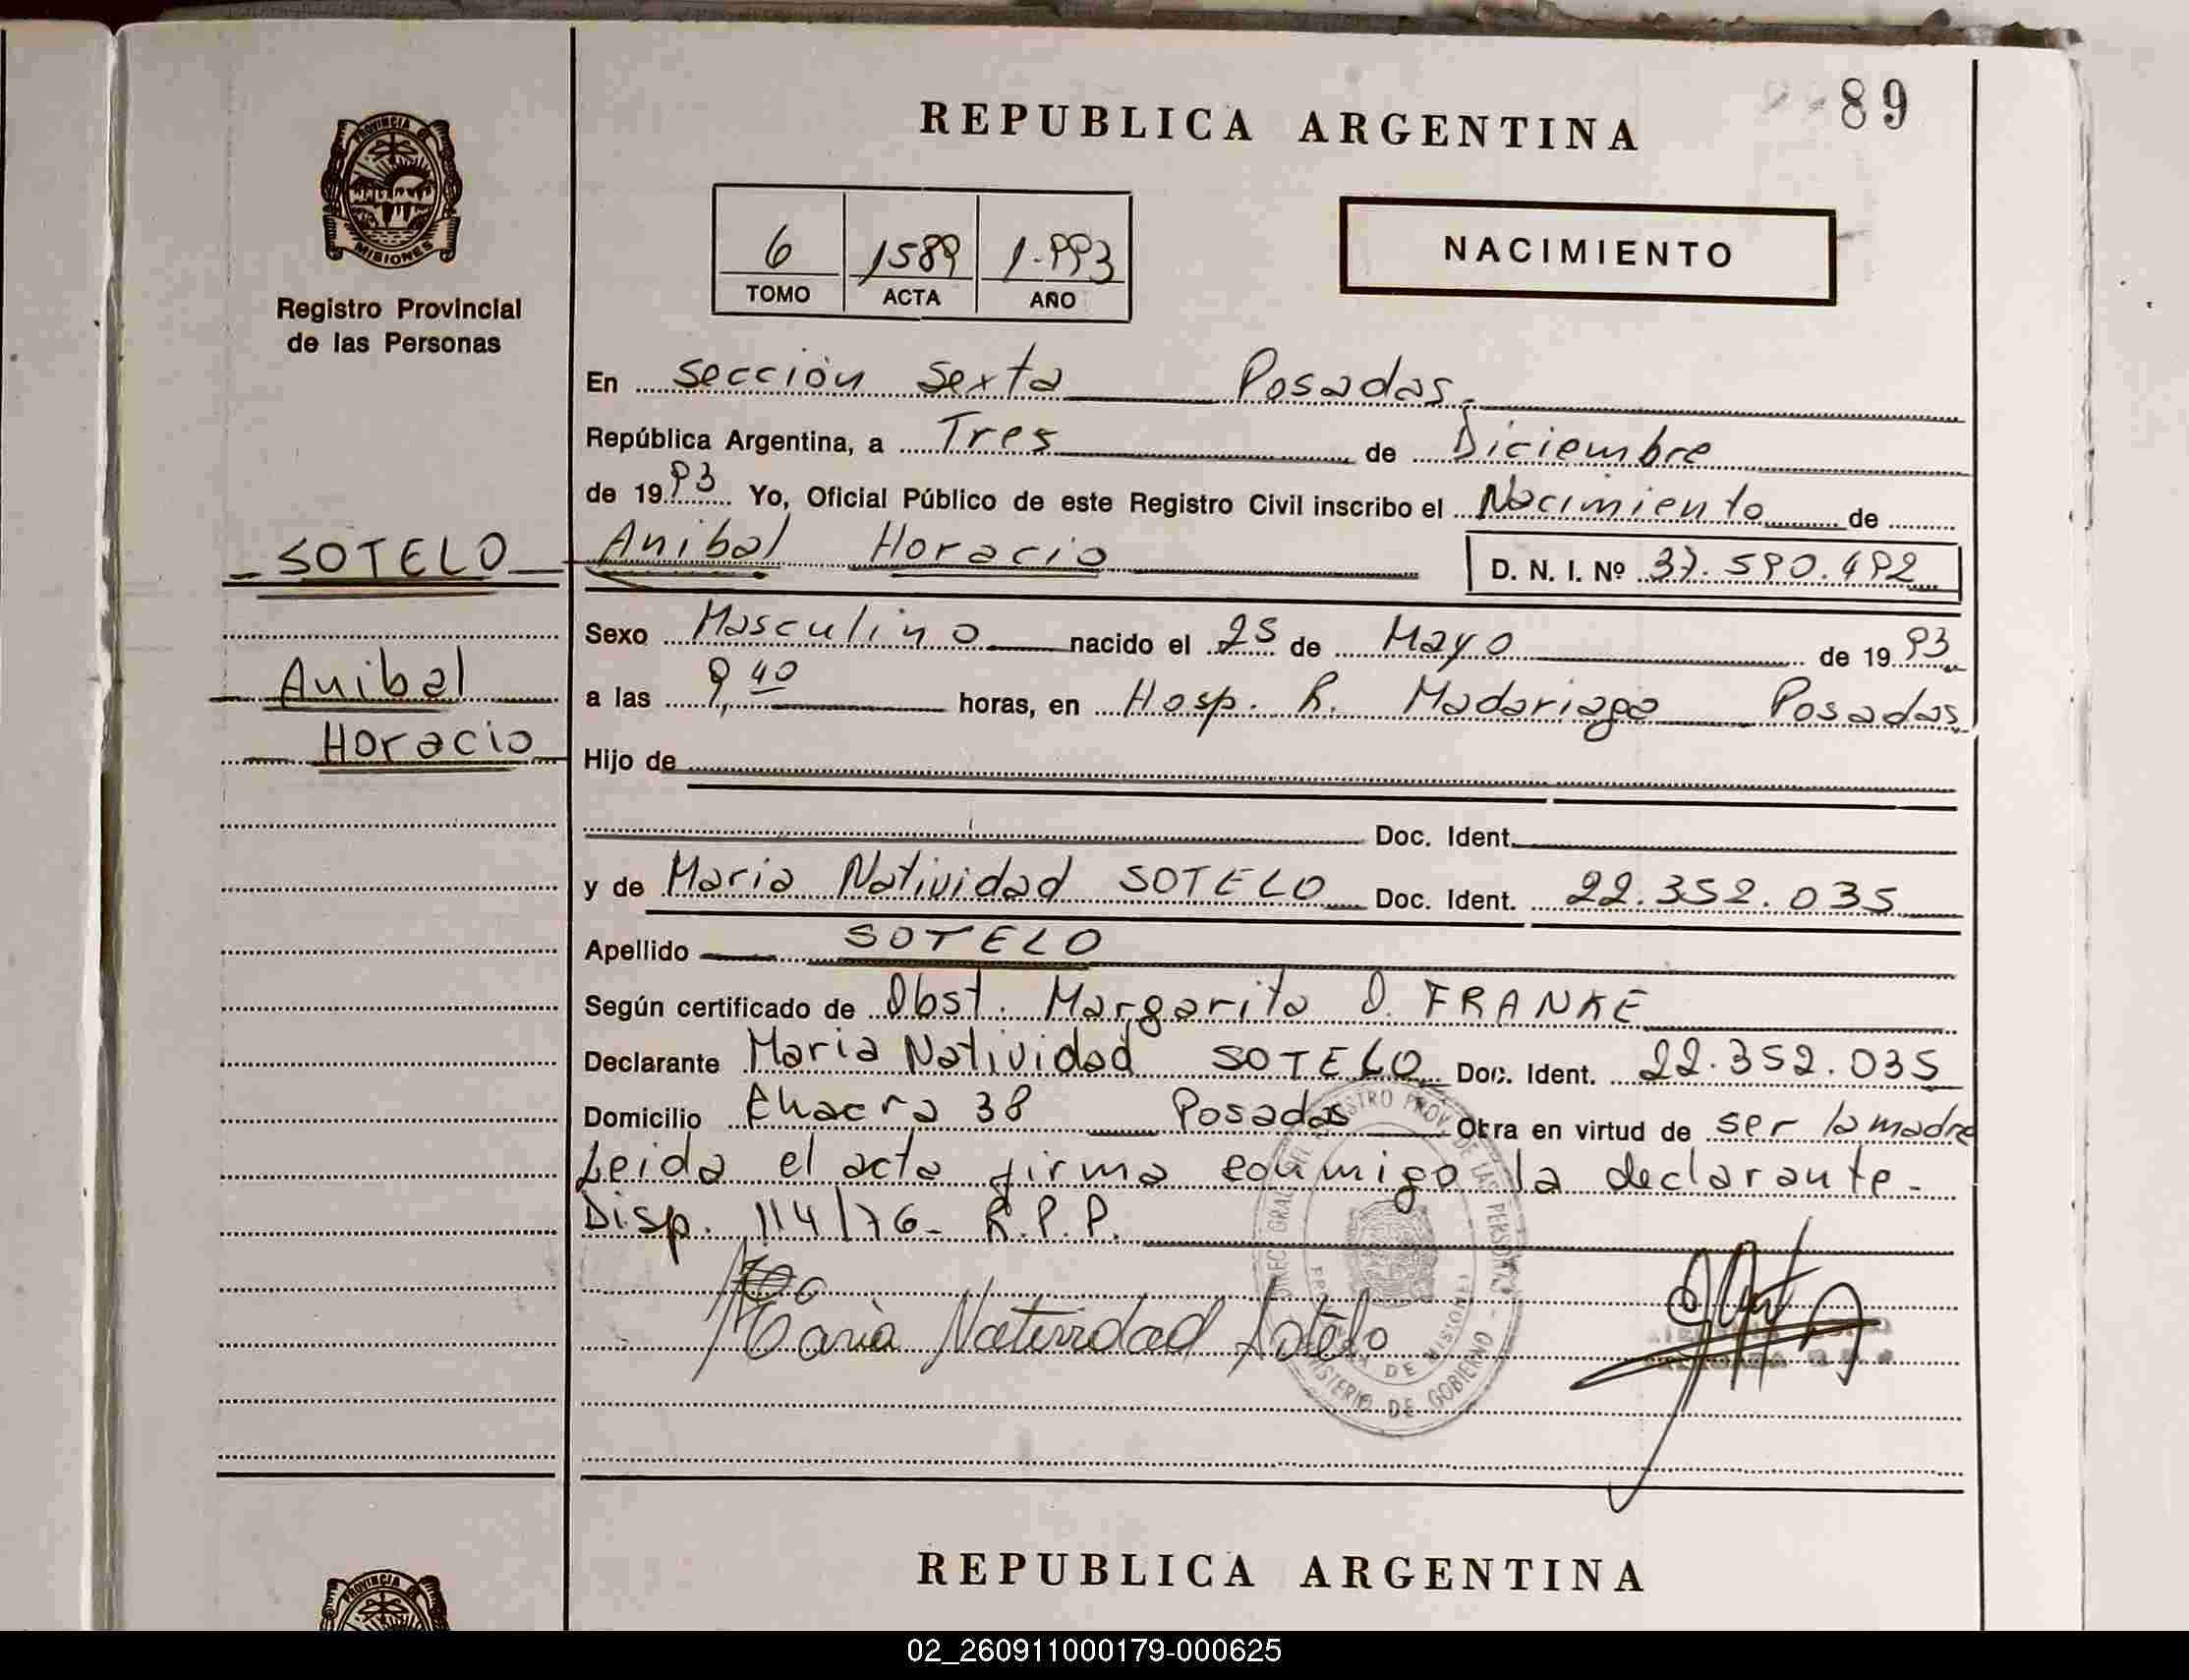 REPUBLICA ARGENTINA
89
PROVINCIA DE
MISIONES
Registro Provincial
de las Personas
6 1589 1.993
TOMO ACTA AÑO
NACIMIENTO
En Sección Sexta Posadas.
República Argentina, a Tres de Diciembre
de 1993 Yo, Oficial Público de este Registro Civil inscribo el Nacimiento de
SOTELO Anibal Horacio D. N. I. Nº 37.590.492
Sexo Masculino nacido el 25 de Mayo de 1993
Anibal
a las 9,40 horas, en Hosp. R. Madariaga Posadas
Horacio
Hijo de
Doc. Ident.
y de Maria Natividad SOTELO Doc. Ident. 22.352.035
Apellido SOTELO
Según certificado de Obst. Margarita O. FRANKE
Declarante Maria Natividad SOTELO Doc. Ident. 22.352.035
Domicilio Chacra 38 Posadas Obra en virtud de ser la madre
Leida el acta firma conmigo la declarante.
Disp. 114/76- R.P.P.
Maria Natividad Sotelo
REGISTRO PROV. DE LAS PERSONAS
MINISTERIO DE GOBIERNO
DE MISIONES
REPUBLICA ARGENTINA
PROVINCIA DE
02_260911000179-000625